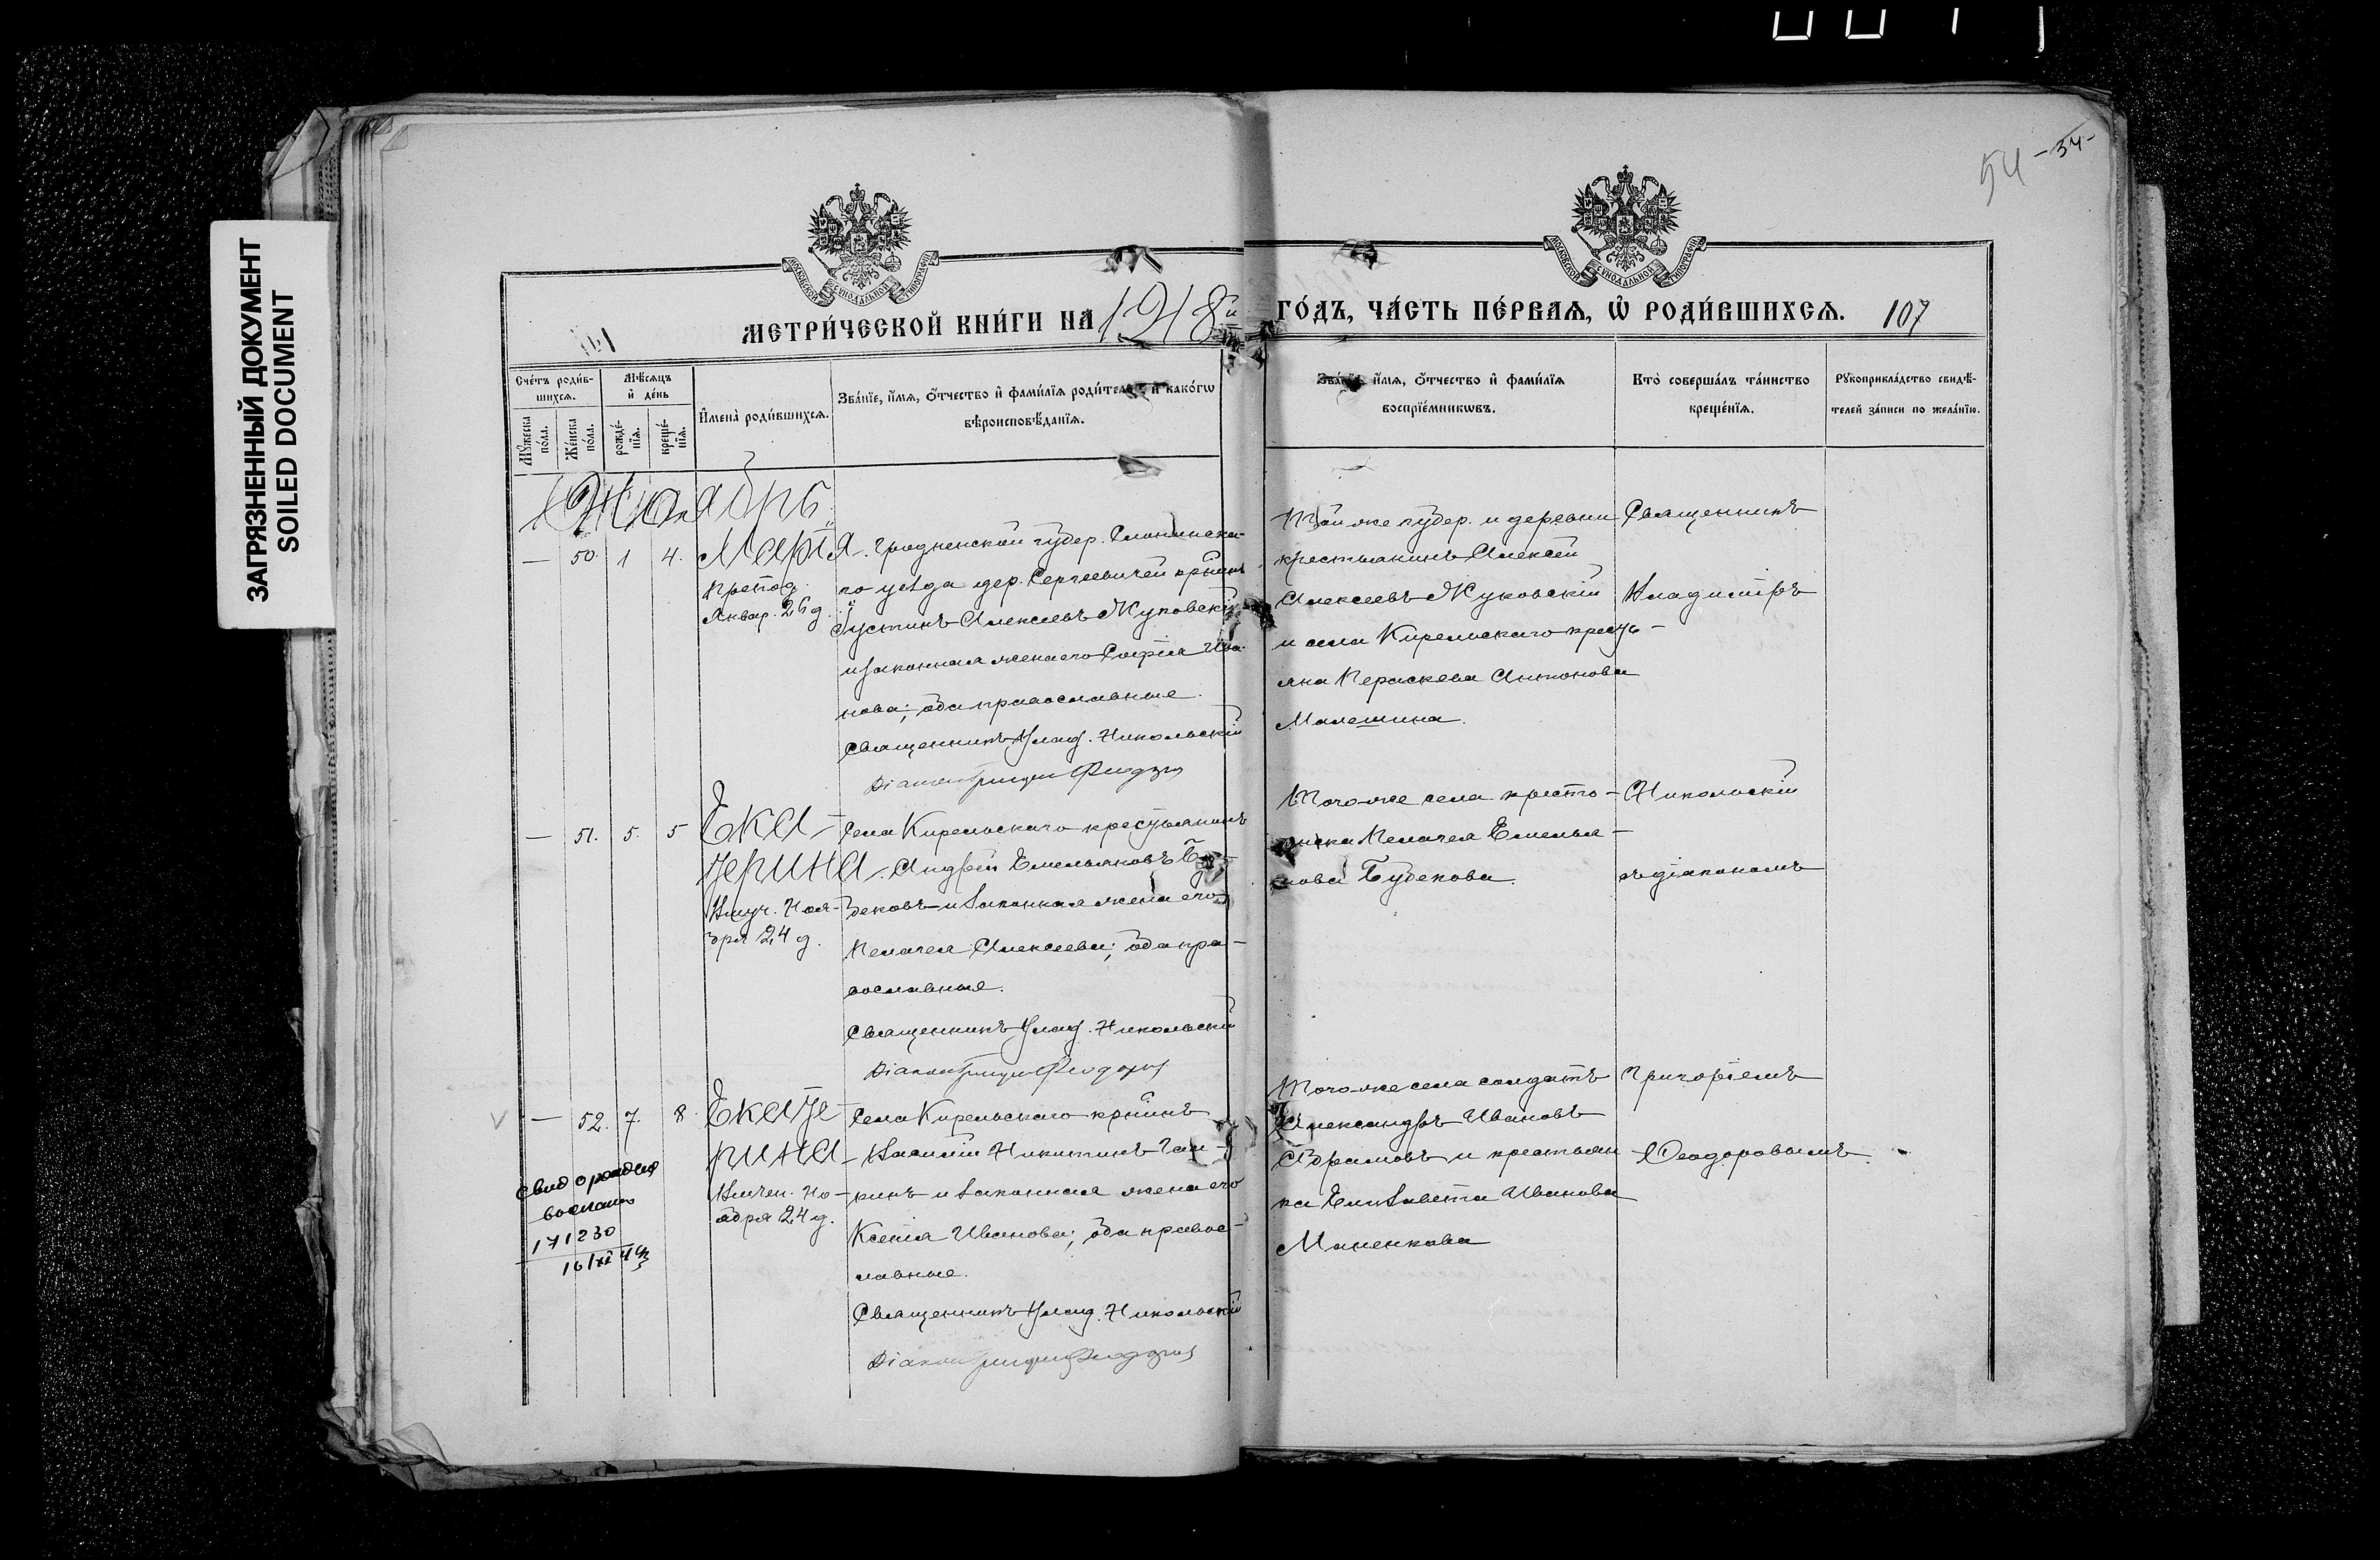 ЗАГРЯЗНЕННЫЙ ДОКУМЕНТ
SOILED DOCUMENT
54 -34-
МОСКОВСКОЙ СѴНОДАЛЬНОЙ ТИПОГРАФІИ
МОСКОВСКОЙ СѴНОДАЛЬНОЙ ТИПОГРАФІИ
МЕТРИ́ЧЕСКОЙ КНИ́ГИ НА 1918й ГО́ДЪ, ЧА́СТЬ ПЕ́РВАЯ, Ѡ РОДИ́ВШИХСЯ. 107
Сче́тъ роди́в-
шихся.
Мꙋ́жеска по́ла.
Же́нска по́ла.
Мѣ́сяцъ и де́нь
рожде́-нїя.
креще́-нїя.
Имена̀ роди́вшихся.
Зва́нїе, и́мя, о́тчество и фами́лїя роди́телей и како́гѡ
вѣроисповѣ́данїя.
Зва́нїе, и́мя, о́тчество и фами́лїя
воспрїе́мникѡвъ.
Кто̀ соверша́лъ та́инство
креще́нїя.
Рꙋкоприкла́дство свидѣ́-
телей за́писи по жела́нїю.
Ноябрь
— 50. 1 4. Марія.
Препод.
Январ. 26 д.
Гродненской губер. Слонимска-
го уѣзда дер. Сергеевичей кр‑нинъ
Іустинъ Алексеевъ Жуковскій
и законная жена его Софія Ива-
нова; оба православные.
Священникъ Влад. Никольскій
Діаконъ Григорій Феодоров
Той же губер. и деревни
крестьянинъ Алексѣй
Алексеевъ Жуковскій
и села Кирельскаго кресть-
янка Параскева Антонова
Малешина.
Священникъ
Владиміръ
— 51. 5. 5 Ека-
терина.
Вмуч. Ноя-
бря 24 д.
Села Кирельскаго крестьянинъ
Андрей Емельяновъ Бу-
бековъ и законная жена его
Пелагея Алексеева; оба пра-
вославные.
Священникъ Влад. Никольскій
Діаконъ Григорій Феодоров
Того же села кресть-
янка Пелагея Емелья-
нова Бубекова.
Никольскій
съ діакономъ
— 52. 7. 8. Екате-
рина
Вмчен. Но-
ября 24 д.
Села Кирельскаго кр‑нинъ
Василій Никитинъ Гал-
кинъ и законная жена его
Ксенія Иванова; оба правос-
лавные.
Священникъ Влад. Никольскій
Діаконъ Григорій Феодоров
Того же села солдатъ
Александръ Ивановъ
Абрамовъ и крестьян
ка Елизавета Иванова
Маненкова
Григоріемъ
Ѳеодоровымъ.
Свид о рожден
171230